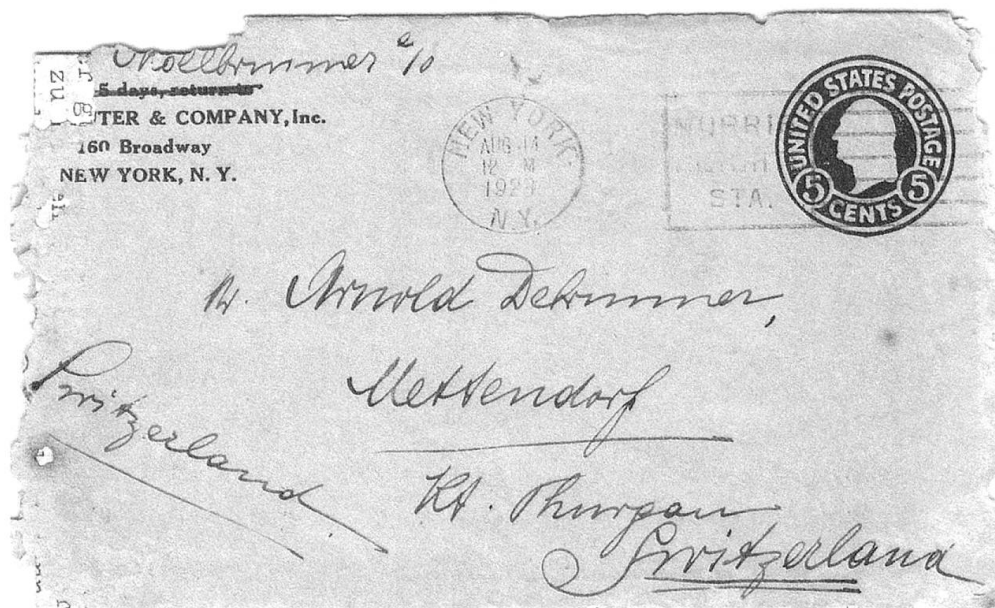 c/o
5 days, return to
TER & COMPANY, Inc.
160 Broadway
NEW YORK, N. Y.
NEW YORK
AUG 14
12 M
192
N.Y.
STA.
UNITED STATES POSTAGE
5 CENTS 5
Arnold
Mettendorf
Kt. Thurgau
Switzerland
Switzerland
zu